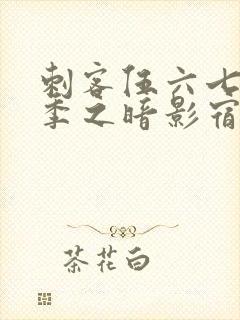 刺客伍六七
季之暗影宿
茶花白